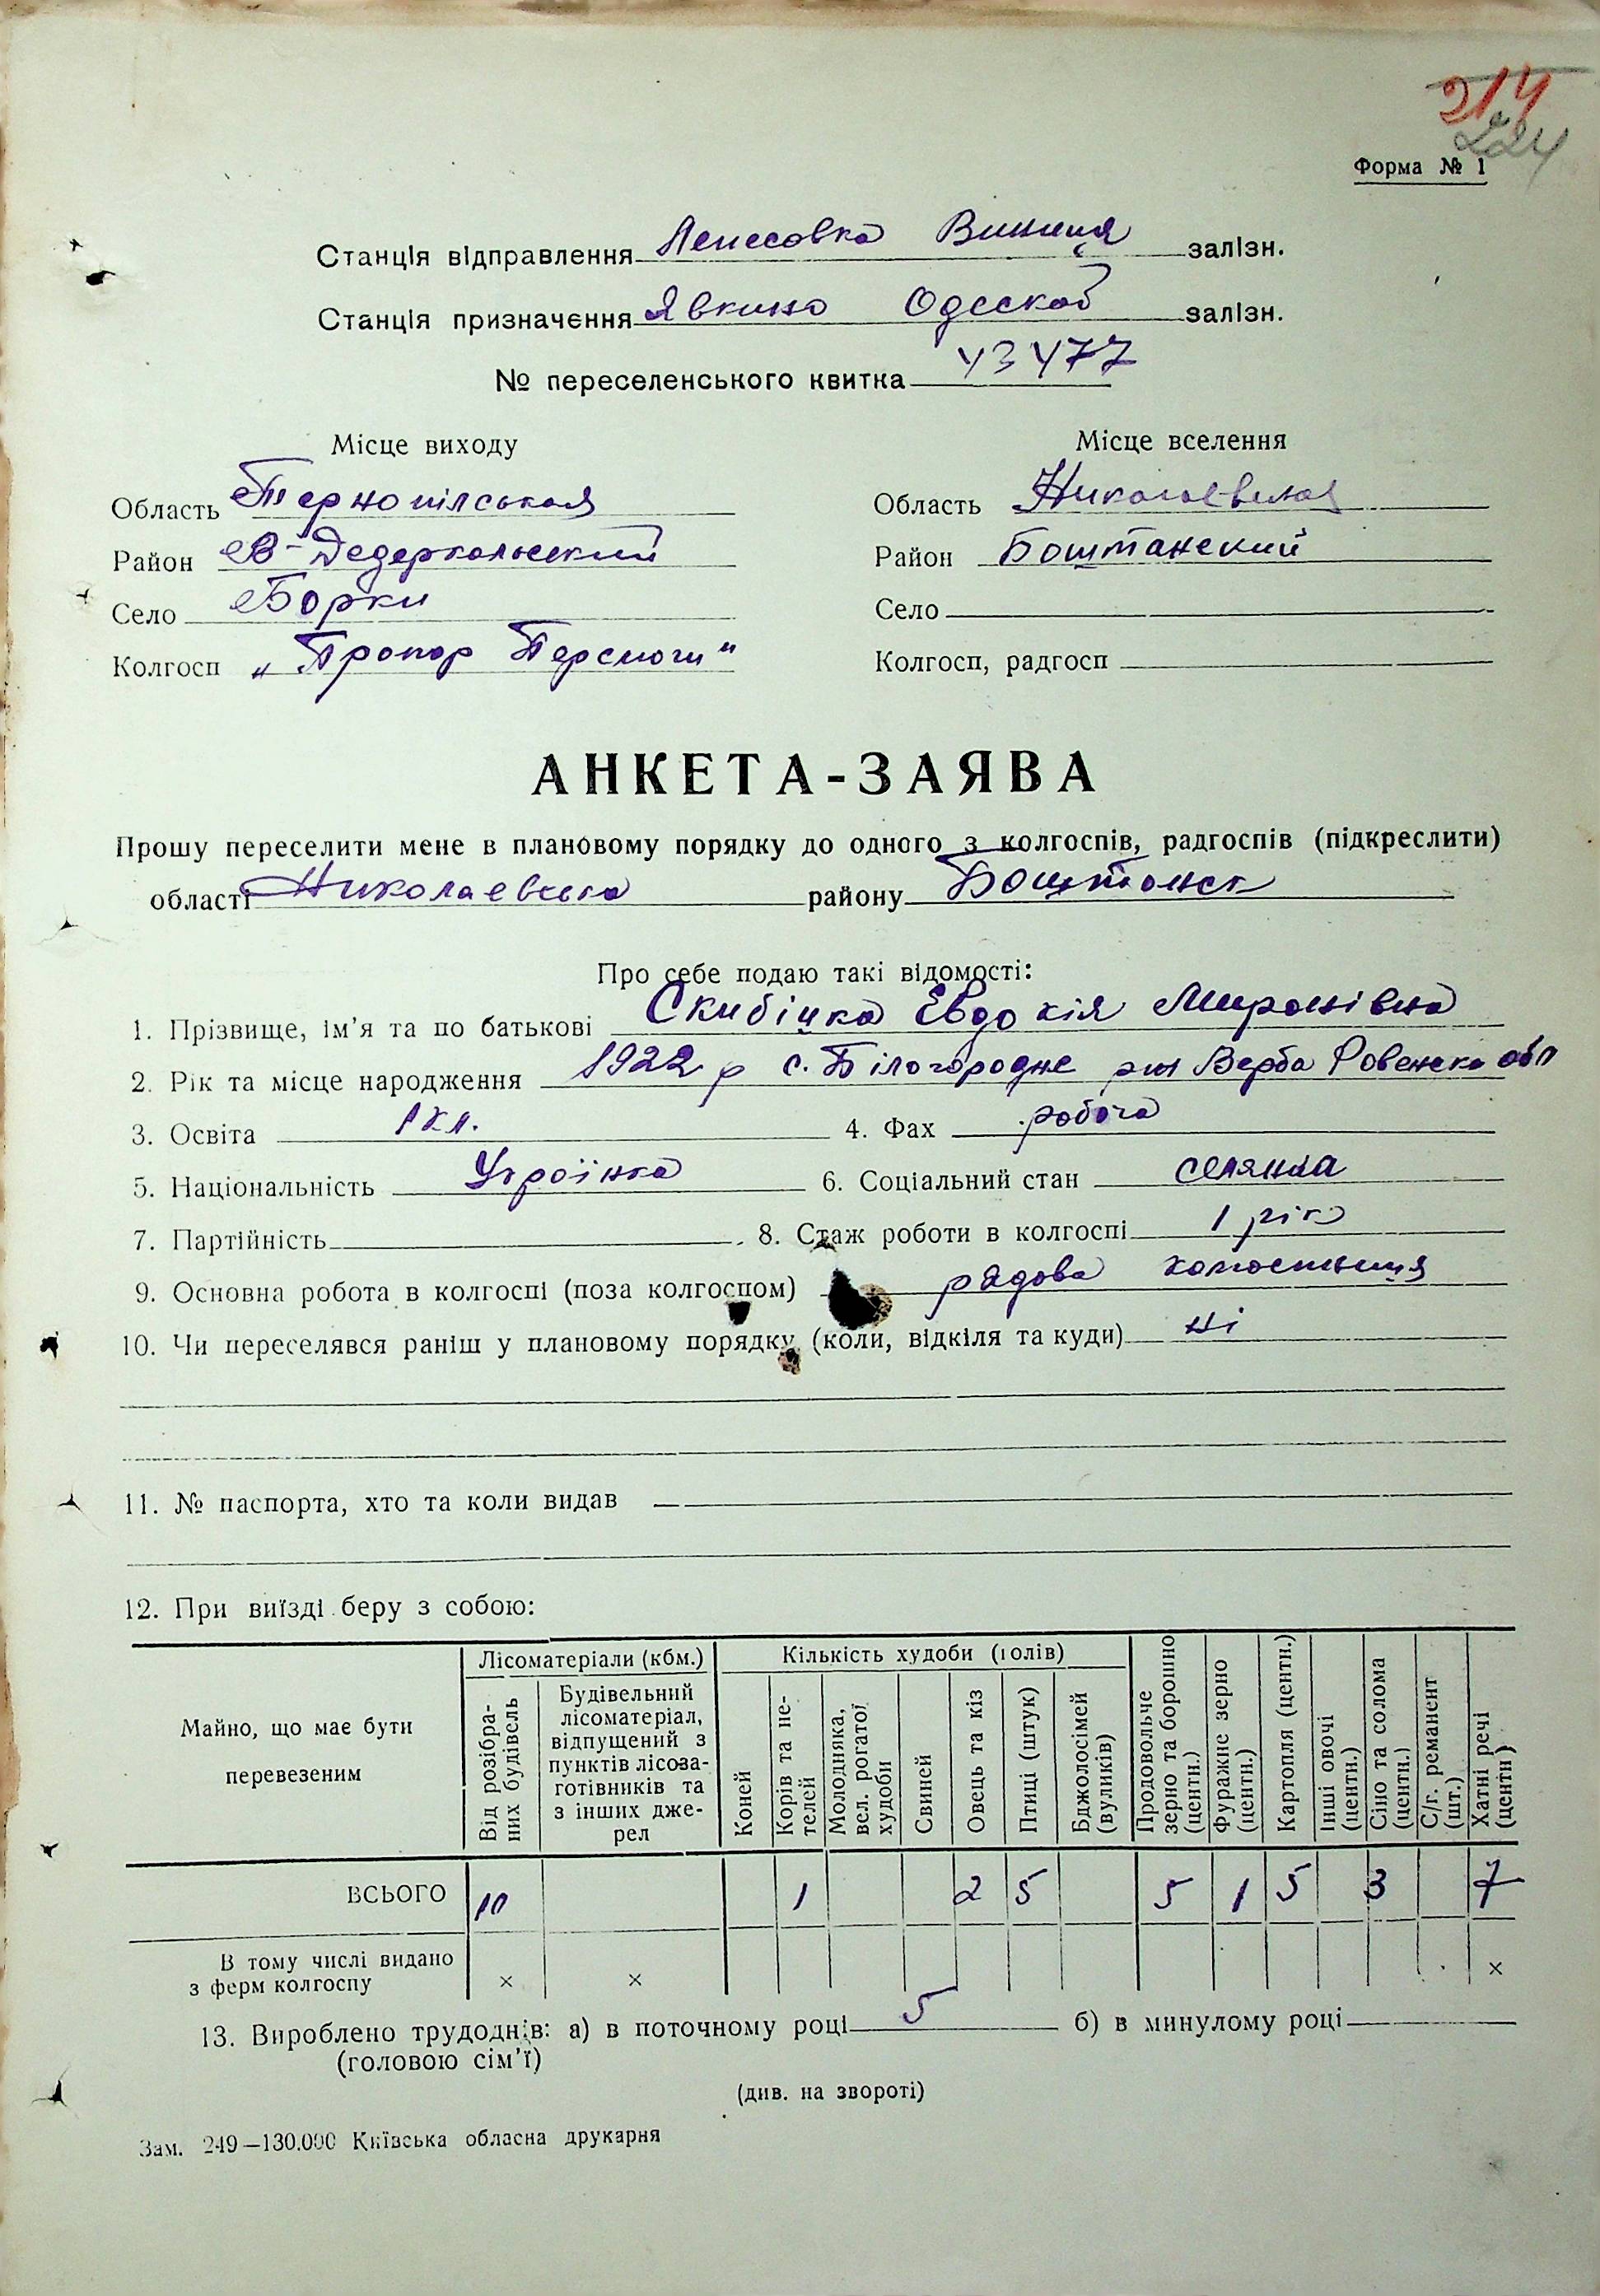 214
224
Форма № 1
Станція відправлення Лепесовка Винниця залізн.
Станція призначення Явкино Одеской залізн.
№ переселенського квитка 43477
Місце виходу Місце вселення
Область Тернопілськая Область Николаевская
Район В-Дедеркальский Район Боштанский
Село Борки Село
Колгосп „Прапор Перемоги" Колгосп, радгосп
АНКЕТА-ЗАЯВА
Прошу переселити мене в плановому порядку до одного з колгоспів, радгоспів (підкреслити)
області Николаевська району Боштанск
Про себе подаю такі відомості:
1. Прізвище, ім'я та по батькові Скибіцка Евдокія Миронівна
2. Рік та місце народження 1922 р с. Білогородне рн Верба Ровенска обл
3. Освіта 1 кл. 4. Фах робоча
5. Національність Українка 6. Соціальний стан селянка
7. Партійність 8. Стаж роботи в колгоспі 1 рік
9. Основна робота в колгоспі (поза колгоспом) рядова колгоспниця
10. Чи переселявся раніш у плановому порядку (коли, відкіля та куди) ні
11. № паспорта, хто та коли видав —
12. При виїзді беру з собою:
Майно, що має бути перевезеним
Лісоматеріали (кбм.)
Від розібраних будівель
Будівельний лісоматеріал, відпущений з пунктів лісозаготівників та з інших джерел
Кількість худоби (голів)
Коней
Корів та нетелей
Молодняка, вел. рогатої худоби
Свиней
Овець та кіз
Птиці (штук)
Бджолосімей (вуликів)
Продовольче зерно та борошно (центн.)
Фуражне зерно (центн.)
Картопля (центн.)
Інші овочі (центн.)
Сіно та солома (центн.)
С/г. реманент (шт.)
Хатні речі (центн)
ВСЬОГО 10 1 2 5 5 1 5 3 7
В тому числі видано
з ферм колгоспу × × ×
13. Вироблено трудоднів: а) в поточному році 5 б) в минулому році
(головою сім'ї)
(див. на звороті)
Зам. 249—130.000 Київська обласна друкарня